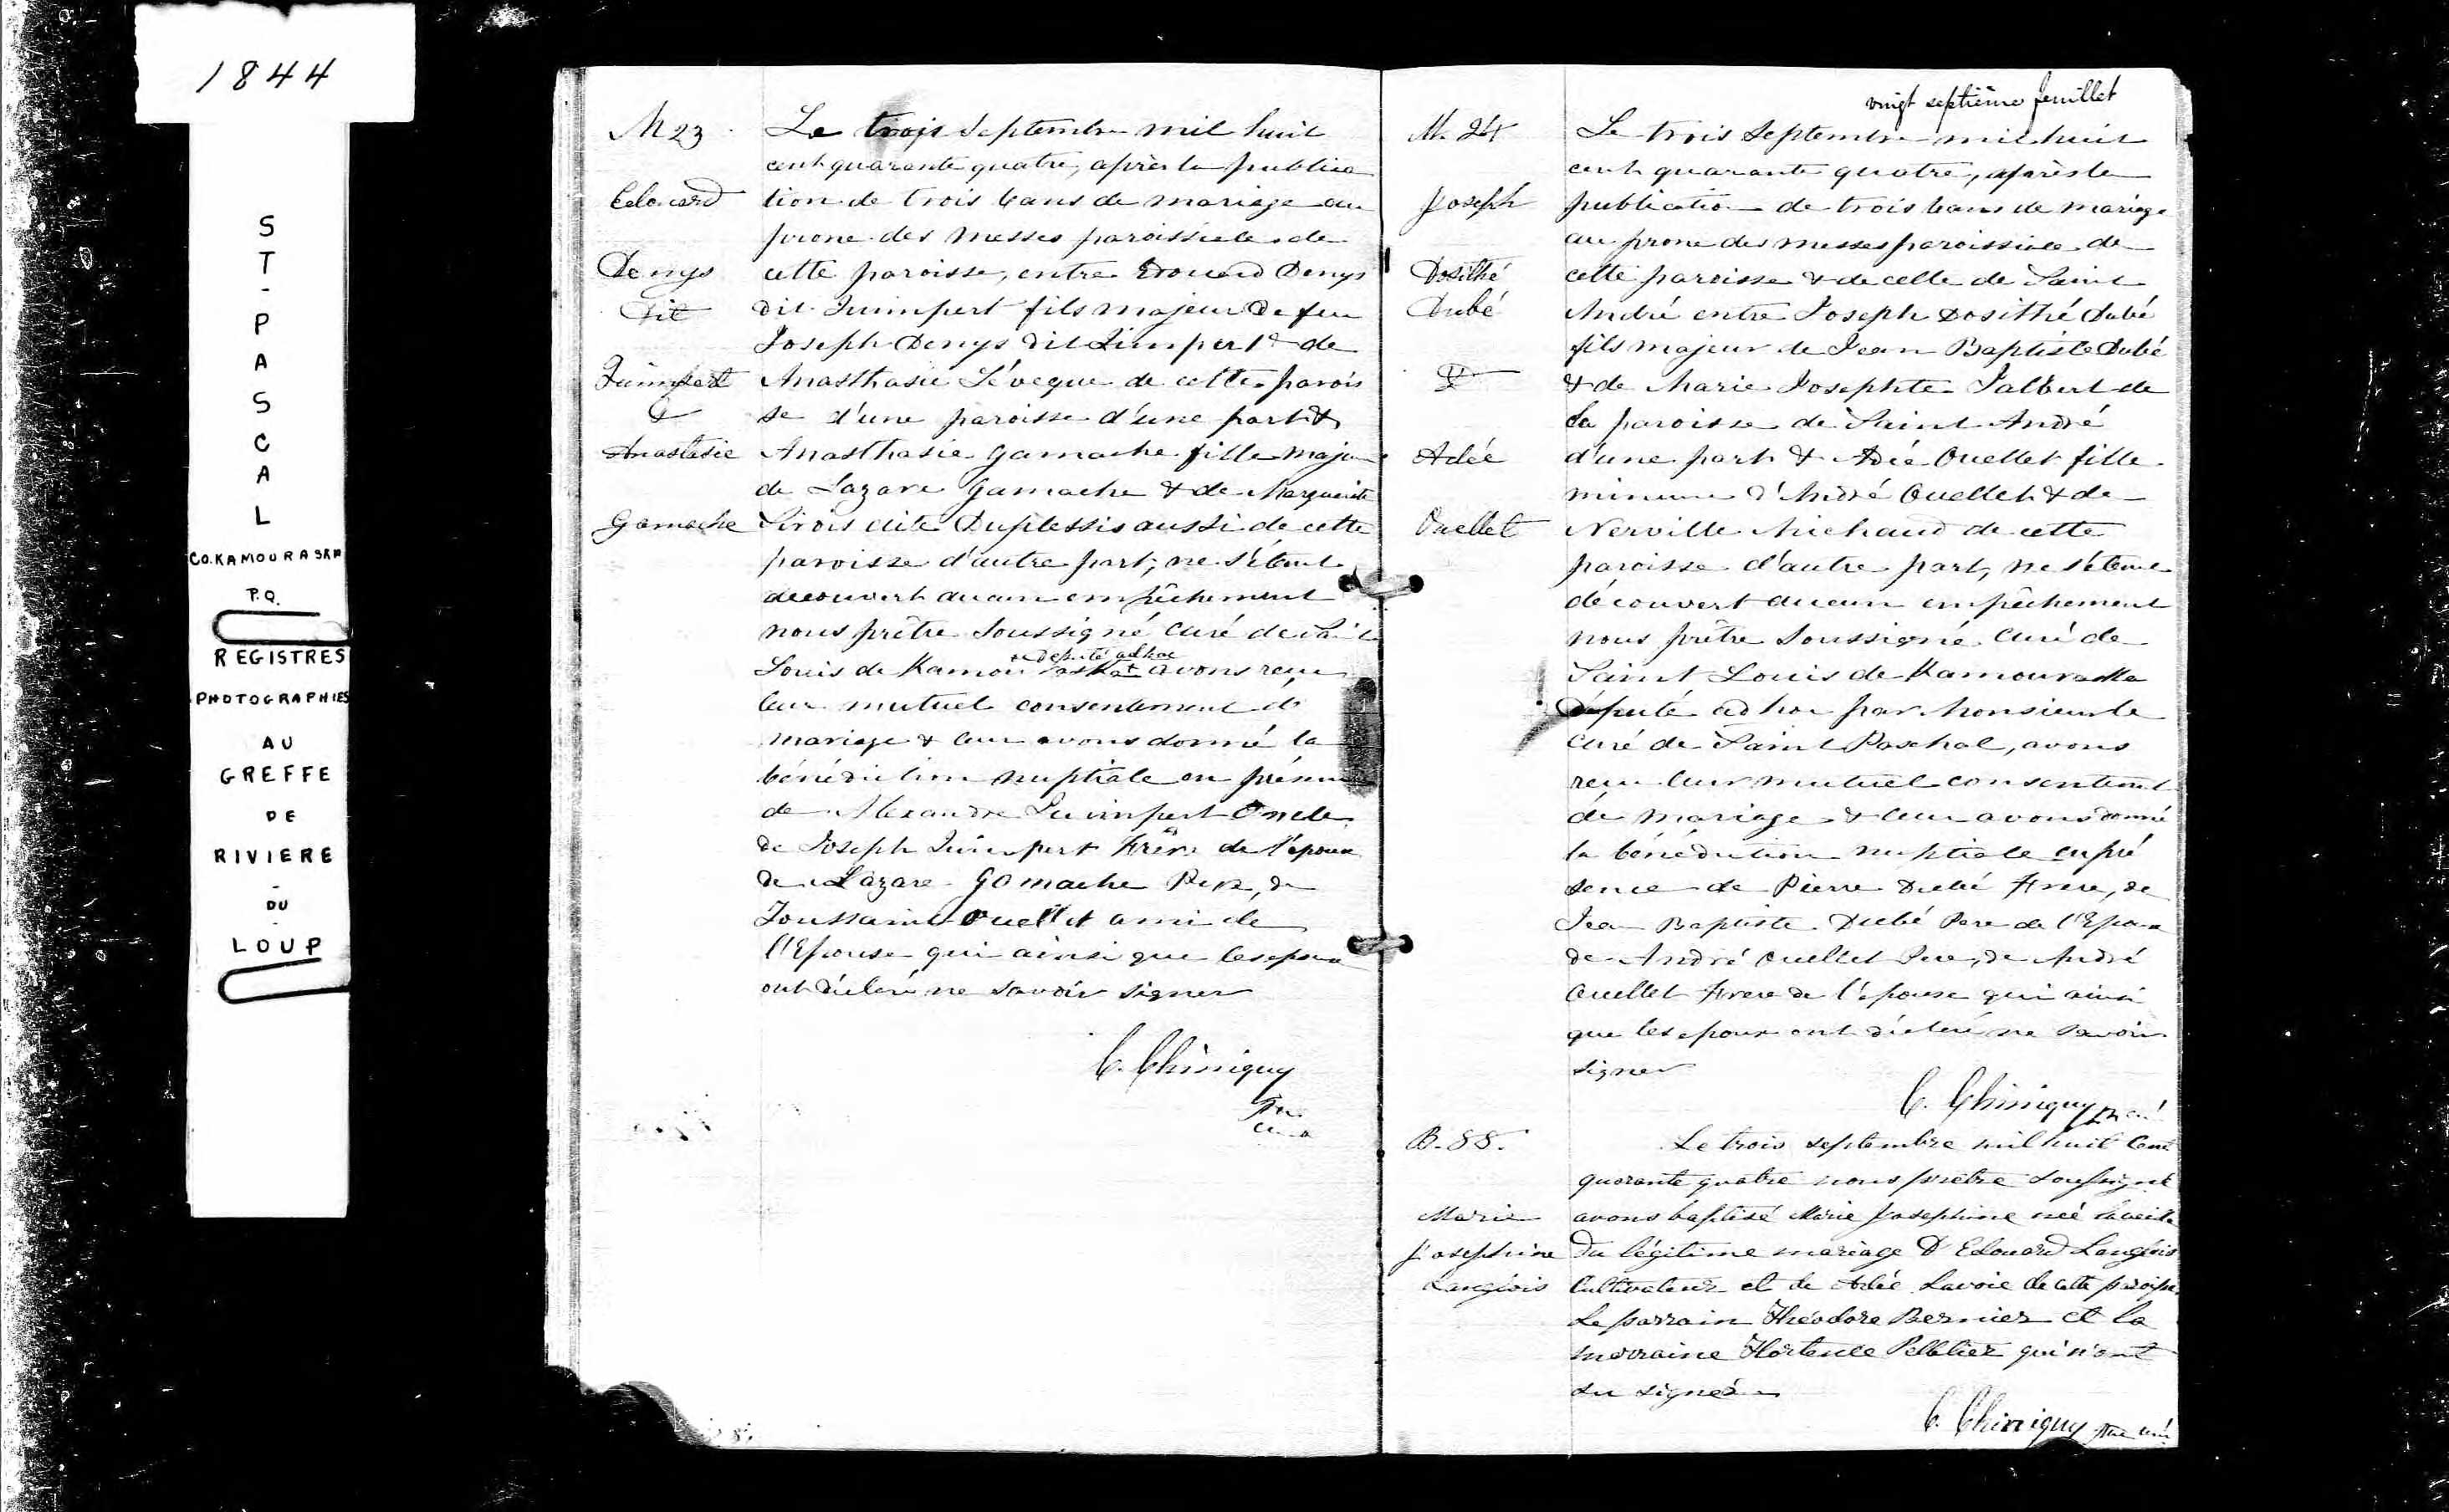 1844
ST-PASCAL
CO. KAMOURASKA
P.Q.
REGISTRES
PHOTOGRAPHIES
AU
GREFFE
DE
RIVIERE
-
DU
-
LOUP
M 23
Edouard
Denys
dit
Quimpert
&
Anastasie
Gamache
Le trois Septembre mil huit
cent quarante quatre, après la publica
tion de trois bans de mariage au
prone des messes paroissiale de
cette paroisse, entre Edouard Denys
dit Quimpert fils majeur de feu
Joseph Denys dit Quimpert & de
Anasthasie Léveque de cette parois
se d'une paroisse d'une part &
Anasthasie Gamache fille majeure
de Lazare Gamache & de Marguerite
Sirois dite Duplessis aussi de cette
paroisse d'autre part; ne s'étant
decouvert aucun empêchement
nous prêtre Soussigné Curé de Saint
+ député adhoc
Louis de Kamouraska + avons reçu
leur mutuel consentement de
mariage & leur avons donné la
bénédiction nuptiale en présence
de Alexandre Quimpert Oncle
de Joseph Quimpert Frère de l'époux
de Lazare Gamache Père, de
Toussaint Ouellet ami de
l'Epouse qui ainsi que les epoux
ont déclaré ne savoir signer
C. Chiniquy
Ptre
Curé
vingt septième feuillet
M. 24
Joseph
Dosithé
Dubé
&
Adée
Ouellet
Le trois Septembre mil huit
cent quarante quatre, après la
publication de trois bans de mariage
au prone des messes paroissiale de
cette paroisse & de celle de Saint
André entre Joseph Dosithé Dubé
fils majeur de Jean Baptiste Dubé
& de Marie Josephte Jalbert de
la paroisse de Saint André
d'une part & Adée Ouellet fille
mineure d'André Ouellet & de
Nerville Michaud de cette
paroisse d'autre part, ne s'étant
découvert aucun empêchement
nous prêtre Soussigné Curé de
Saint Louis de Kamouraska
député ad hoc par Monsieur le
Curé de Saint Paschal, avons
reçu leur mutuel consentement
de mariage & leur avons donné
la bénédiction nuptiale en pré
sence de Pierre Dubé Frere, de
Jean Baptiste Dubé Pere de l'Epoux
de André Ouellet Pere, de André
Ouellet Frere de l'épouse qui ainsi
que les epoux ont déclaré ne savoir
signer
C. Chiniquy Ptr curé
B. 88.
Marie
Josephine
Langlois
Le trois septembre mil huit cent
quarante quatre nous prêtre soussigné
avons baptisé Marie Josephine née la veille
du légitime mariage D'Edouard Langlois
Cultivateur et de Adée Lavoie de cette paroisse
Le parrain Théodore Bernier et la
marraine Hortence Pelletier qui n'ont
su signer
C. Chiniquy Ptre curé